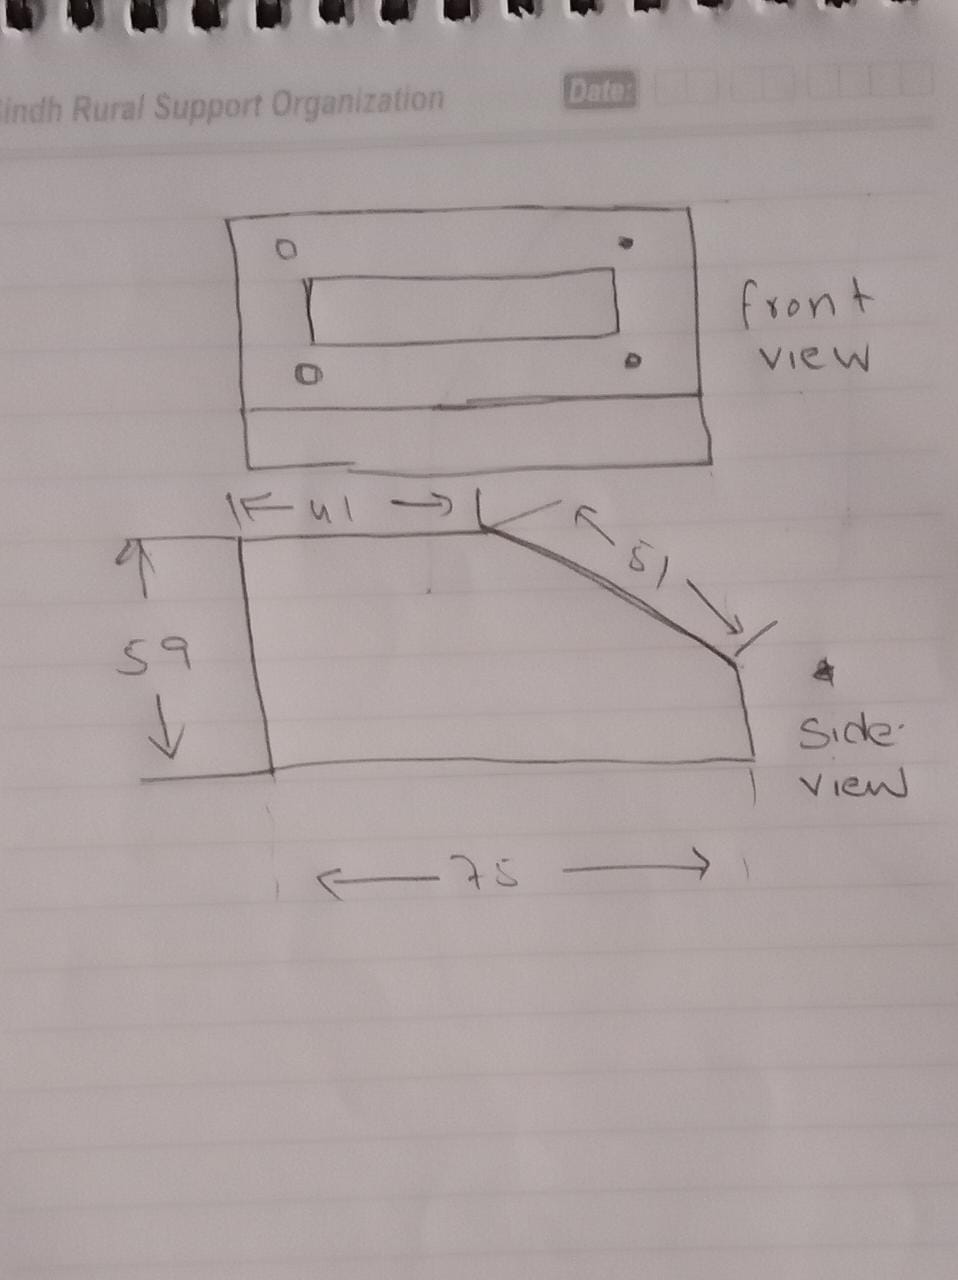 indh Rural Support Organization
Date:
front
view
41
51
59
Side
view
75